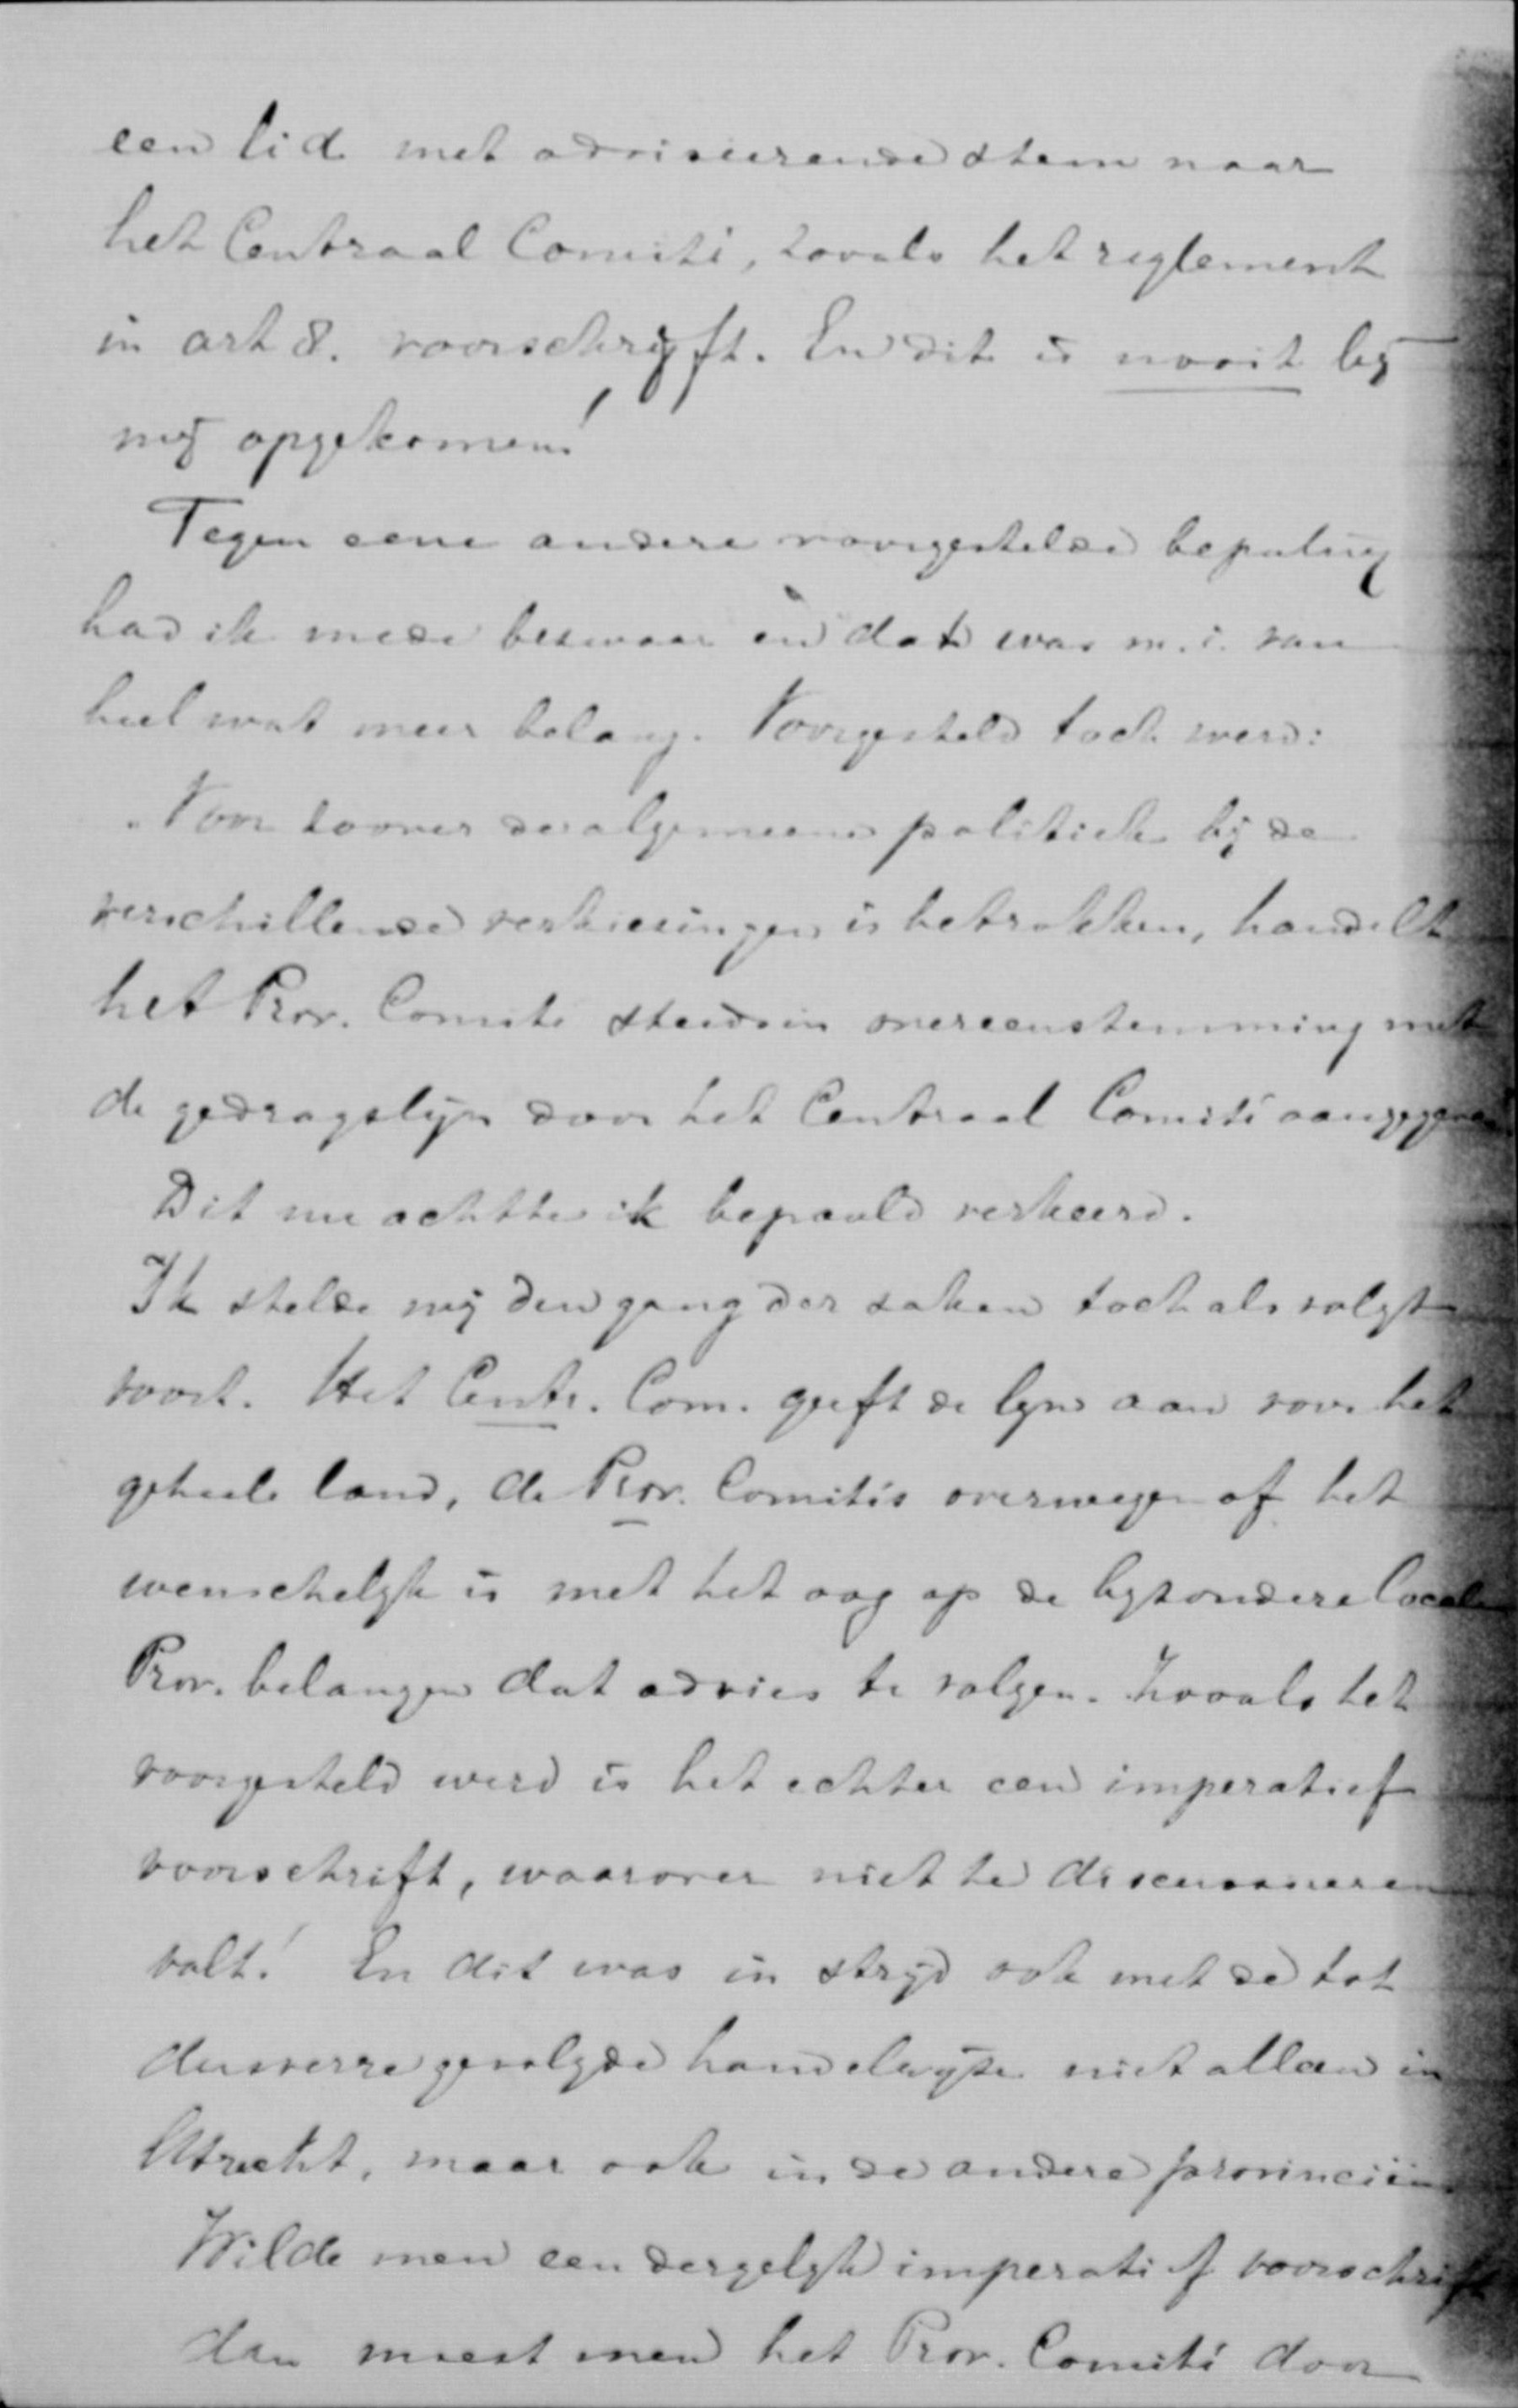 een lid met adviseerende stem naar
het Centraal Comité, zooals het reglement
in art 8. voorschrijft. En dit is nooit bij
mij opgekomen!
Tegen eene andere voorgestelde bepaling
had ik mede bezwaar en dat was m.i. van
heel wat meer belang. Voorgesteld toch werd:
"Voor zoover de algemeene politiek bij de
verschillende verkiezingen is betrokken, handelt
het Prov. Comité steeds in overeenstemming met
de gedragslijn door het Centraal Comité aangegeven
Dit nu achtte ik bepaald verkeerd.
Ik stelde mij den gang der zaken toch als volgt
voort. Het Centr. Com. geeft de lijn aan voor het
geheele land, de Prov. Comités overwegen of het
wenschelijk is met het oog op de bijzondere locale
Prov. belangen dat advies te volgen. Zooals het
voorgesteld werd is het echter een imperatief
voorschrift, waarover niet te discussieeren
valt! En dit was in strijd ook met de tot
dusverre gevolgde handelwijze niet alleen in
Utrecht, maar ook in de andere provinciën.
Wilde men een dergelijk imperatief voorschrift
dan moest men het Prov. Comité door